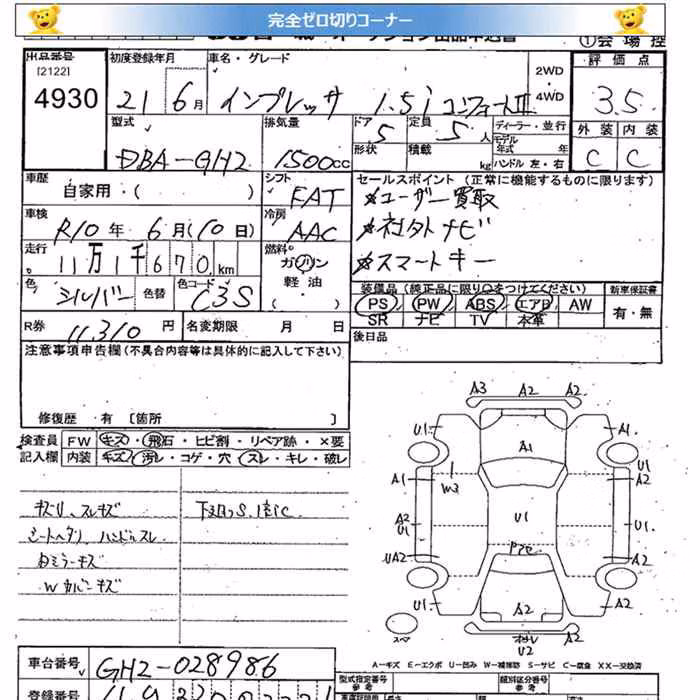 完全ゼロ切りコーナー
①会場控
出品番号 [2122] 4930
初度登録年月 21 6月
車名・グレード インプレッサ 1.5i コンフォートII
2WD・4WD
評価点 3.5
外装 内装
C C
型式 DBA-GH2
排気量 1500cc
ドア 5 形状
定員 5人 積載 kg
ディーラー・並行
モデル年式 年
ハンドル 左・右
車歴 自家用・( )
シフト FAT
セールスポイント (正常に機能するものに限ります)
★ユーザー買取
★社外ナビ
★スマートキー
車検 R10年 6月(10日)
冷房 AAC
走行 11万1千670km
燃料 ガソリン 軽油 ( )
色 シルバー 色替 色コード C3S
装備品(純正品に限り○をつけてください)
PS PW ABS エアB AW
SR ナビ TV 本革
新車保証書 有・無
R券 11,310円 名変期限 月 日
後日品
注意事項申告欄(不具合内容等は具体的に記入して下さい)
修復歴 有 〔箇所 〕
検査員 FW キズ・飛石・ヒビ割・リペア跡・×要
記入欄 内装 キズ・汚レ・コゲ・穴・スレ・キレ・破レ
キズリ、スレキズ
シートヘタリ、ハンドルスレ
Rミラーキズ
Wカバーキズ
A3 A2 A2
U1 A1
A1
U1
A1 A2
W3
A2 U1
U1
U1.
Pre
UA2 A2
U1 A2 A2
スペ
U2
A-キズ E-エクボ U-凹み W-補修跡 S-サビ C-腐食 XX-交換済
車台番号 GH2-028986
登録番号
型式指定番号 参考
類別区分番号 参考